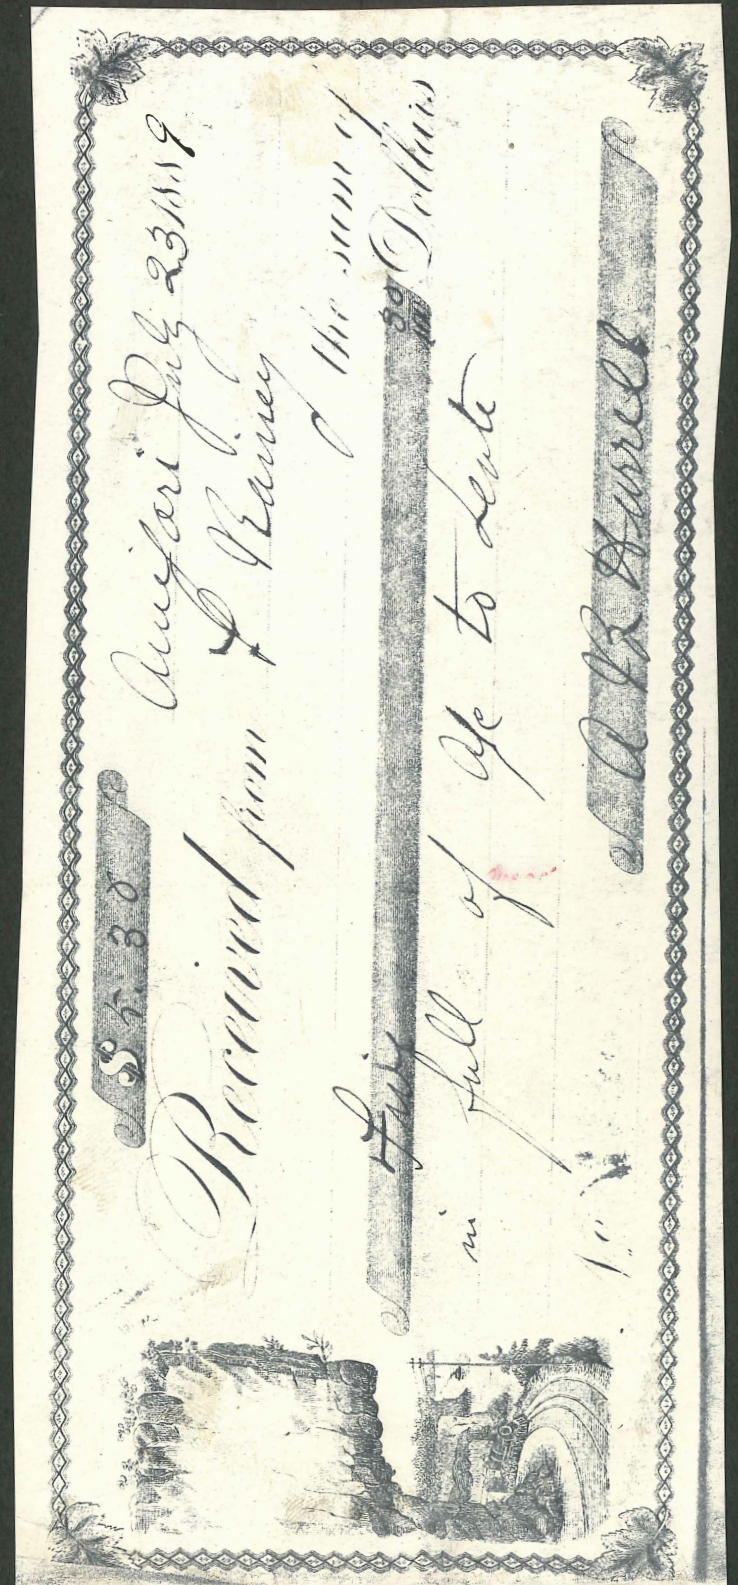 $ 5.30
Arnprior July 23 1889
Received from J Rainey
the sum of
Five 30/100 Dollars
in full of a/c to date
A B Hurrell